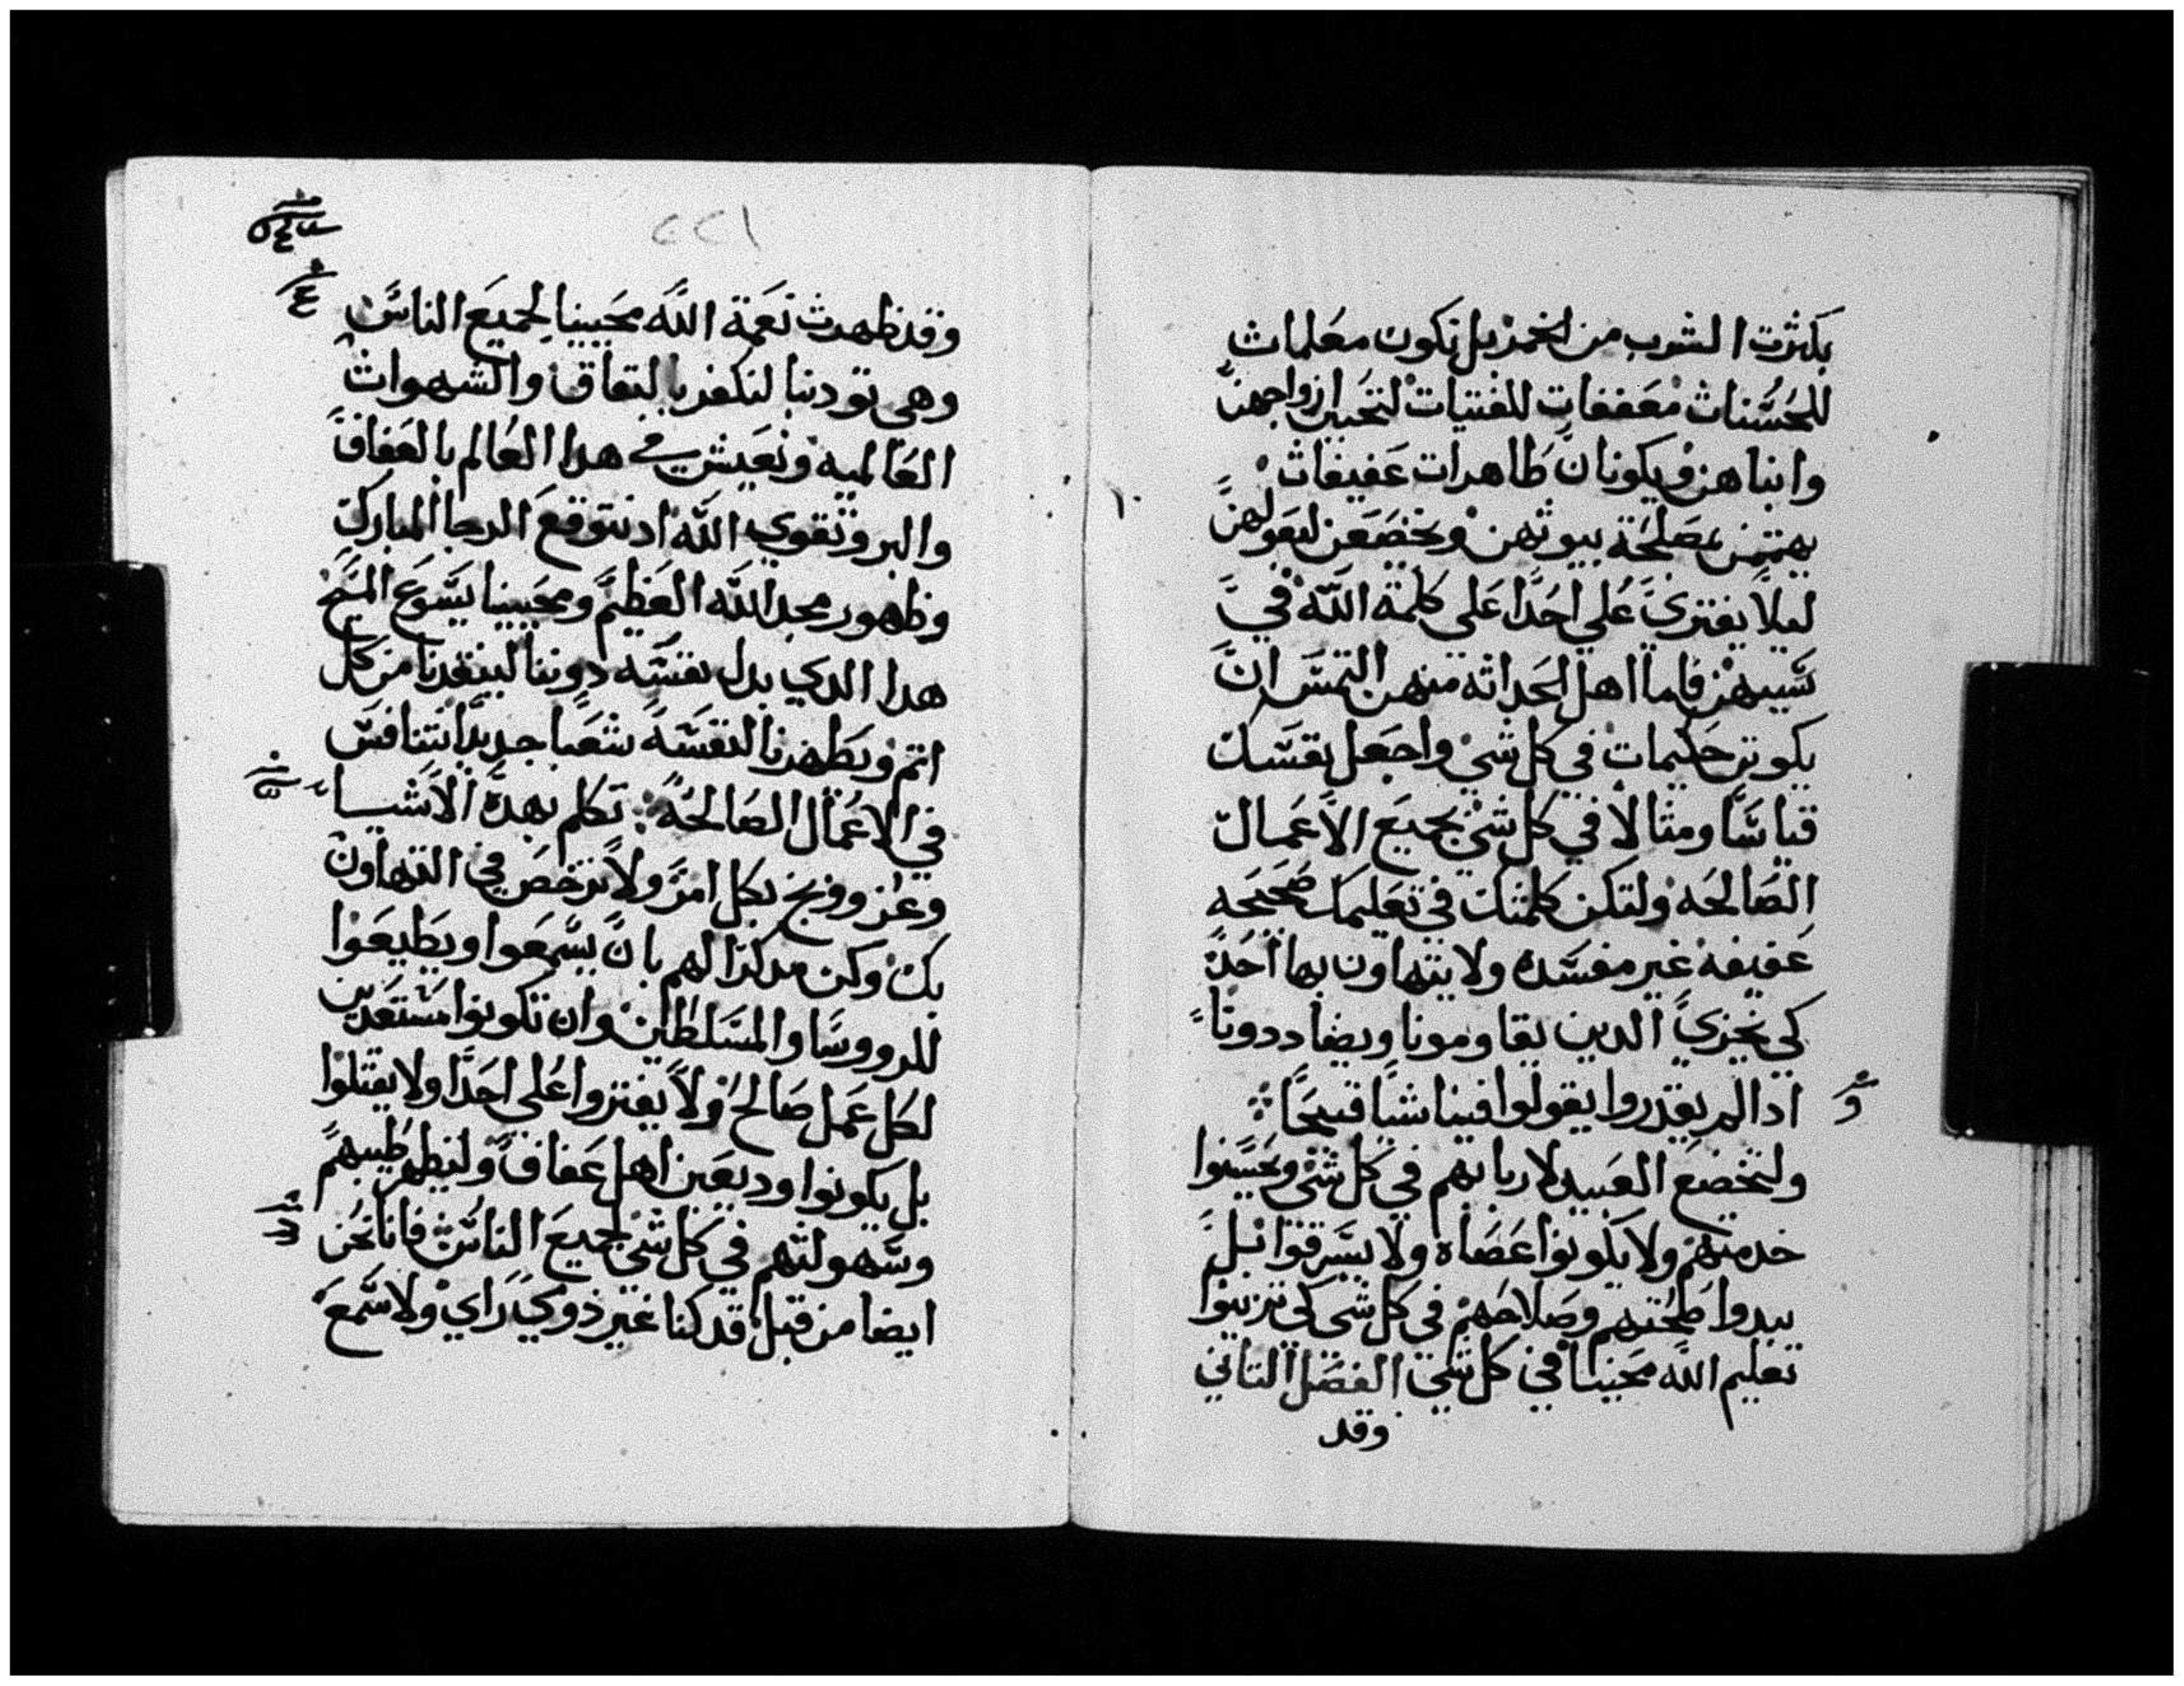 بكثرت الشرب من الخمر بل تكون معلمات
للحسنات معففات للفتيات لتحببن ازواجهن
وابناهن ويكونان طاهرات عفيفات
يهتمن بمصلحة بيوتهن ويخضعن لبعولهن
ليلا يفتري علي احدا علي كلمة الله في
سببهن فاما اهل الحداثه منهن التمس ان
يكونن حكيمات في كل شي واجعل نفسك
قياسا ومثالا في كل شي بجميع الاعمال
الصالحه ولتكن كلمتك في تعليمك صحيحه
عفيفه غير مفسده ولا يتهاون بها احد
كي يخزي الدين يقاومونا ويضاددونا
ادا لم يقدروا يقولوا فينا شيا قبيحا
ولتخضع العبيد لاربابهم في كل شي ويحسنوا
خدمتهم ولا يكونوا عصاه ولا يسرقوا بل
يبدوا صحتهم وصلاحهم في كل شي كي تزينوا
تعليم الله محيينا في كل شي الفصل التاني
وقد
٢٢١
وقد ظهرت نعمة الله محيينا لجميع الناس
وهي تودبنا لنكفر بالنفاق والشهوات
العالميه ونعيش في هدا العالم بالعفاف
والبر وتقوي الله اد نتوقع الرجا المبارك
وظهور مجد الله العظيم ومحيينا يسوع المسيح
هدا الدي بدل نفسه دوننا لينقدنا من كل
اتم ويطهرنا لنفسه شعبا جديدا يتنافس
في الاعمال الصالحة تكلم بهده الاشيا
وعز ووبخ بكل امر ولا ترخص في التهاون
بك وكن مدكرا لهم بان يسمعوا ويطيعوا
للرووسا والمسلطين وان تكونوا مستعدين
لكل عمل صالح ولا يفتروا علي احدا ولا يقتلوا
بل يكونوا وديعين اهل عفاف وليظهر طيبهم
وسهولتهم في كل شي لجميع الناس فانا نحن
ايضا من قبل قد كنا غير ذوي راي ولا سمع